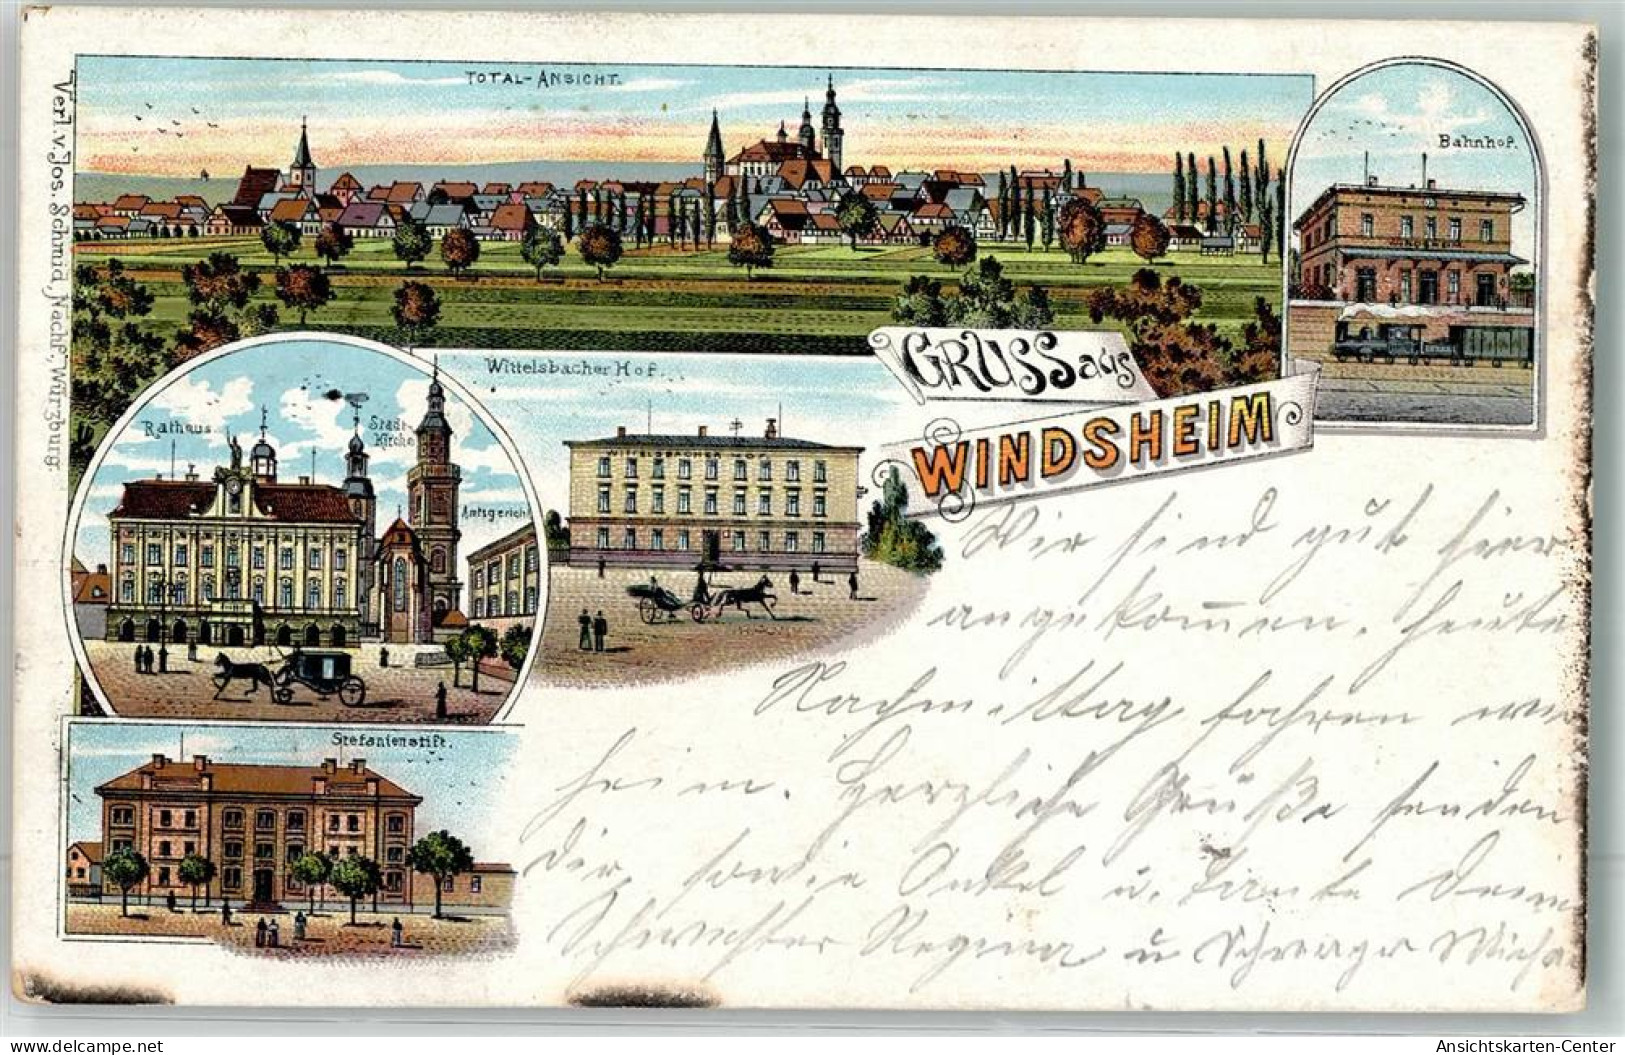 TOTAL-ANSICHT.
Bahnhof.
WINDSHEIM
Verl. v. Jos. Schmid, Nachf., Würzburg.
GRUSS aus
WINDSHEIM
Wittelsbacher Hof.
WITTELSBACHER HOF
Rathaus
Stadt-
Kirche
Amtsgericht
Stefanienstift.
Wir sind gut hier
angekommen. Heute
Nachmittag fahren wir
heim. Herzliche Grüße senden
dir, sowie Onkel u. Tante Deine
Schwester Regina u Schwager Micha
Ansichtskarten-Center
www.delcampe.net